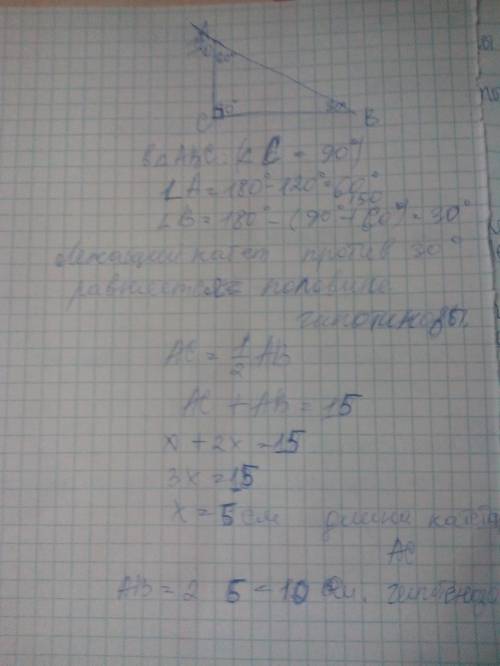 A
60°
C 90° 30° B
В △ABC: (∠C = 90°)
∠A = 180° - 120° = 60°
150
∠B = 180° - (90° + 60°) = 30°
Лежащий катет против 30°
равняется половине
гипотинозы.
AC = 1/2 AB
AC + AB = 15
x + 2x = 15
3x = 15
x = 5 см длина катета
AC
AB = 2 5 = 10 см. гипотенуза